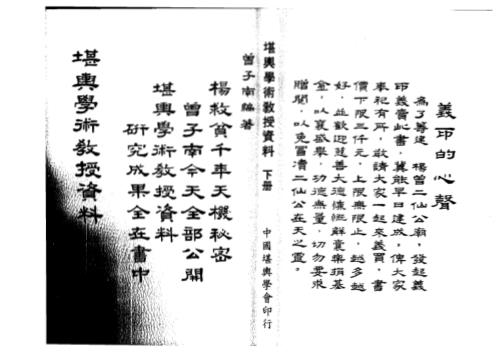 義印的心聲
為了籌建 楊曾二仙公廟，發起義
印義賣此書，冀能早日建成，俾大家
奉祀有所，敬請大家一起來義買，書
價下限三仟元，上限無限止，越多越
好，並歡迎慈善大德慷慨解囊樂捐基
金，以襄盛舉，功德無量，切勿要求
贈閱，以免冒瀆二仙公在天之靈。
堪輿學術教授資料 下冊 中國堪輿學會印行
曾子南編著
楊救貧千年天機秘密
曾子南今天全部公開
堪輿學術教授資料
研究成果全在書中
堪輿學術教授資料